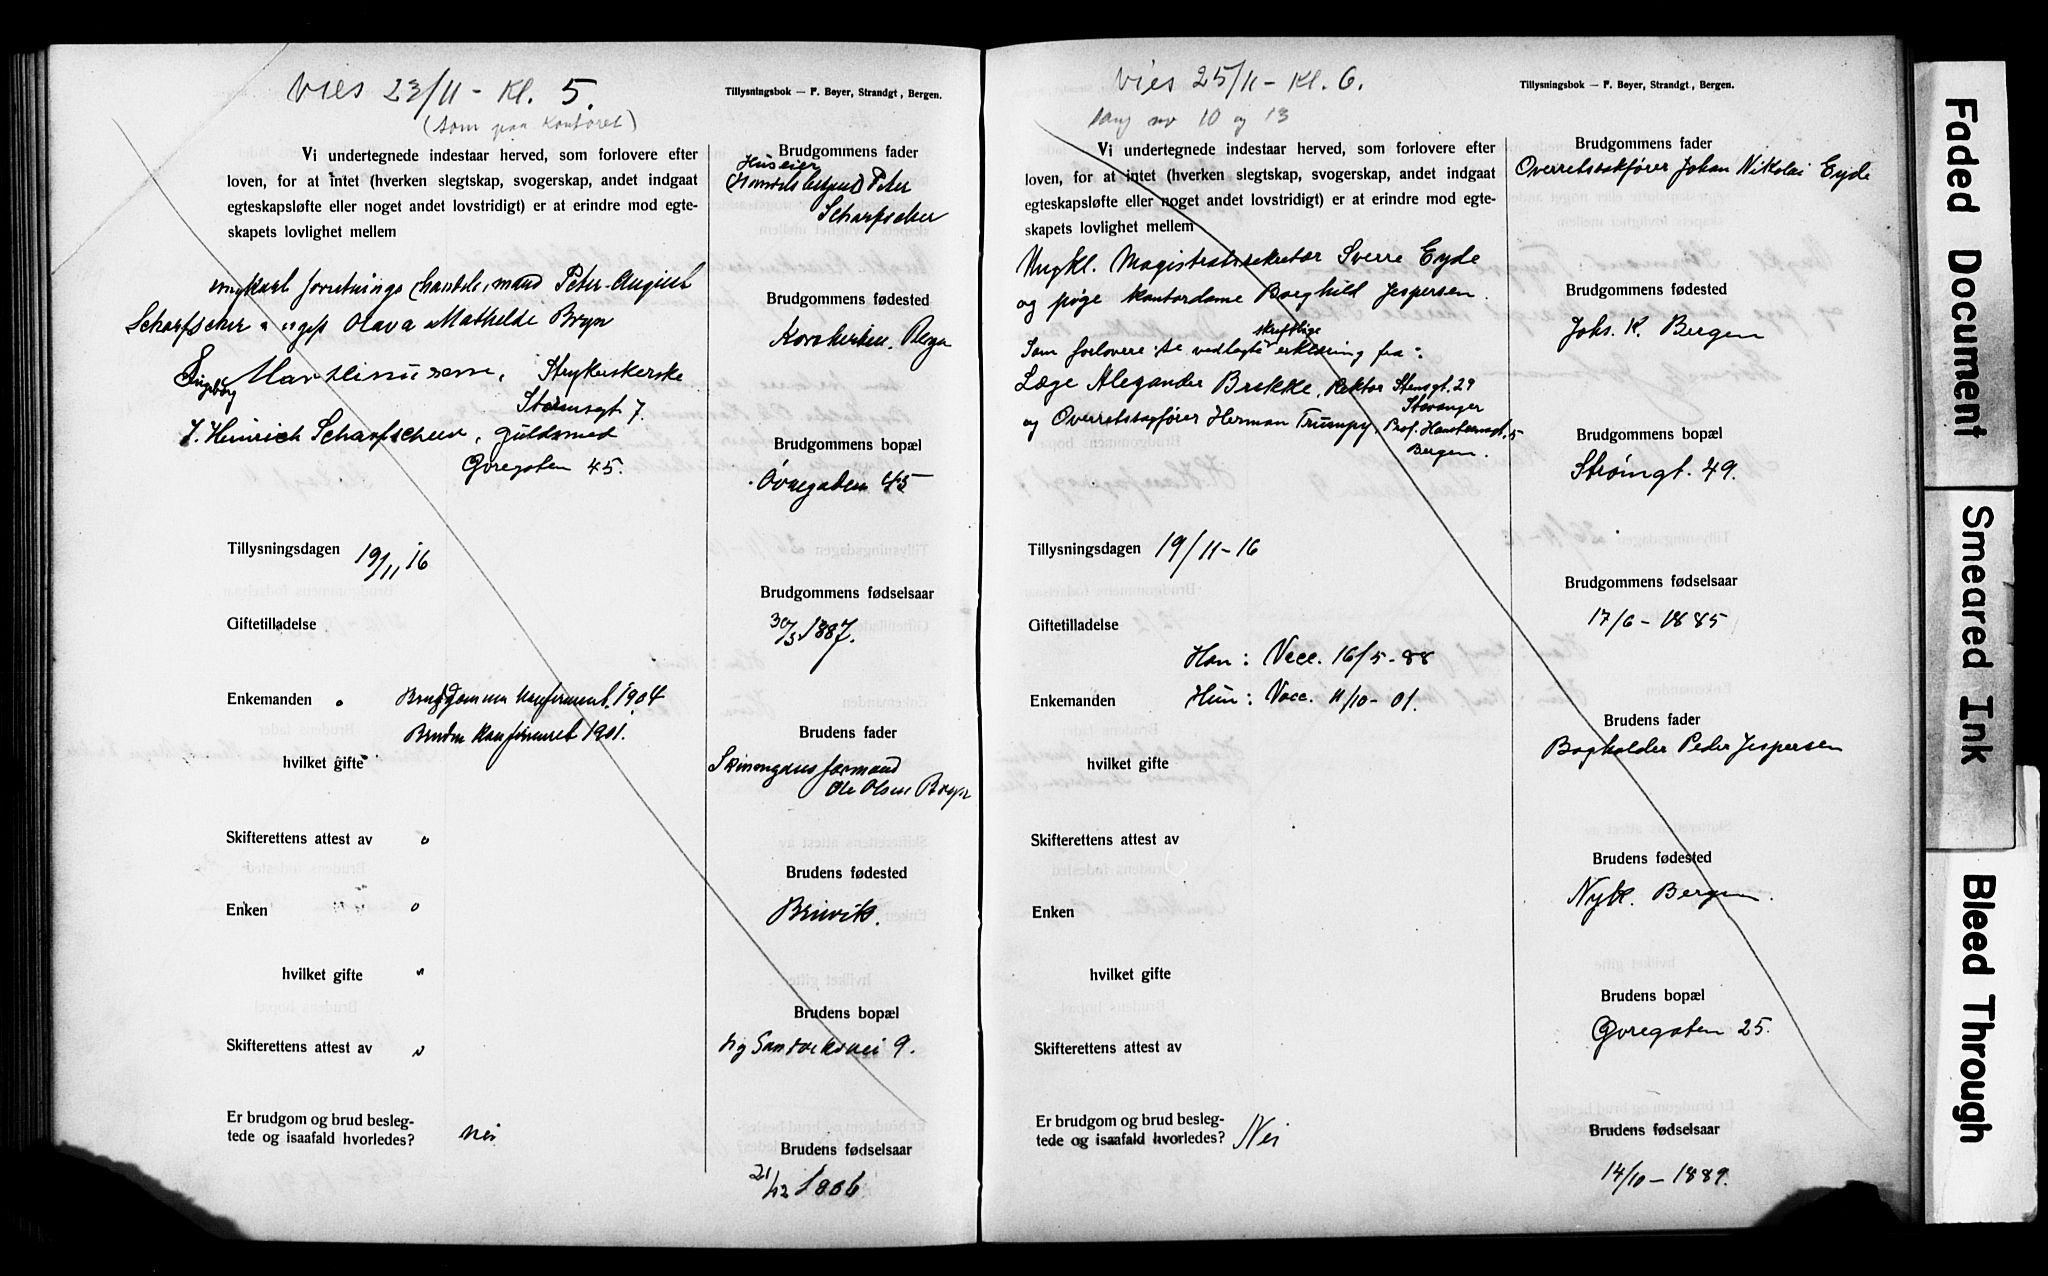 Vies 23/11 - Kl. 5.
(som paa Kontoret)
Tillysningsbok — F. Bøyer, Strandgt., Bergen.
Vi undertegnede indestaar herved, som forlovere efter
loven, for at intet (hverken slegtskap, svogerskap, andet indgaat
egteskapsløfte eller noget andet lovstridigt) er at erindre mod egte-
skapets lovlighet mellem
ungkarl forretnings (handels) mand Peter August
Scharfscher og ugift Olava Mathilde Brynn
Ingeborg Marthinussen, Strykerske
Stormsgt 7.
J. Heinrich Scharfscheer, Guldsmed
Øvregaten 45.
Tillysningsdagen 19/11 16
Giftetilladelse
Enkemanden " Brudgommen konfirmert 1904
Bruden konfirmeret 1901.
hvilket gifte "
Skifterettens attest av "
Enken "
hvilket gifte "
Skifterettens attest av "
Er brudgom og brud besleg-
tede og isaafald hvorledes? nei
Brudgommens fader
Huseier
Peter
Scharfscher
Brudgommens fødested
Korskirken, Bergen
Brudgommens bopæl
Øvregaden 45
Brudgommens fødselsaar
30/3 1887.
Brudens fader
formand
Ole Olsen Brynn
Brudens fødested
Brudens bopæl
Ny Sandviksvei 9.
Brudens fødselsaar
21/12 1886
Vies 25/11 - Kl. 6.
sang nr 10 og 13
Tillysningsbok — F. Bøyer, Strandgt., Bergen.
Vi undertegnede indestaar herved, som forlovere efter
loven, for at intet (hverken slegtskap, svogerskap, andet indgaat
egteskapsløfte eller noget andet lovstridigt) er at erindre mod egte-
skapets lovlighet mellem
Ungkl. Magistratssekretær Sverre Eyde
og pige kontordame Borghild Jespersen.
Som forlovere se vedlagte skriftlige erklæring fra:
Læge Alexander Brekke, Rektor Stensgt. 29
Stavanger
og Overretssagfører Herman Trumpy, Prof. Hansteensgt. 5
Bergen.
Tillysningsdagen 19/11-16
Giftetilladelse
Han: Vacc. 16/5-88
Enkemanden Hun: Vacc. 11/10-01.
hvilket gifte
Skifterettens attest av
Enken
hvilket gifte
Skifterettens attest av
Er brudgom og brud besleg-
tede og isaafald hvorledes? Nei
Brudgommens fader
Overretssakfører Johan Nikolai Eyde
Brudgommens fødested
Johs. K. Bergen
Brudgommens bopæl
Strømgt. 49.
Brudgommens fødselsaar
17/6-1885
Brudens fader
Bogholder Peder Jespersen
Brudens fødested
Nyk. Bergen.
Brudens bopæl
Øvregaten 25.
Brudens fødselsaar
14/10-1889.
Faded Document
Smeared Ink
Bleed Through